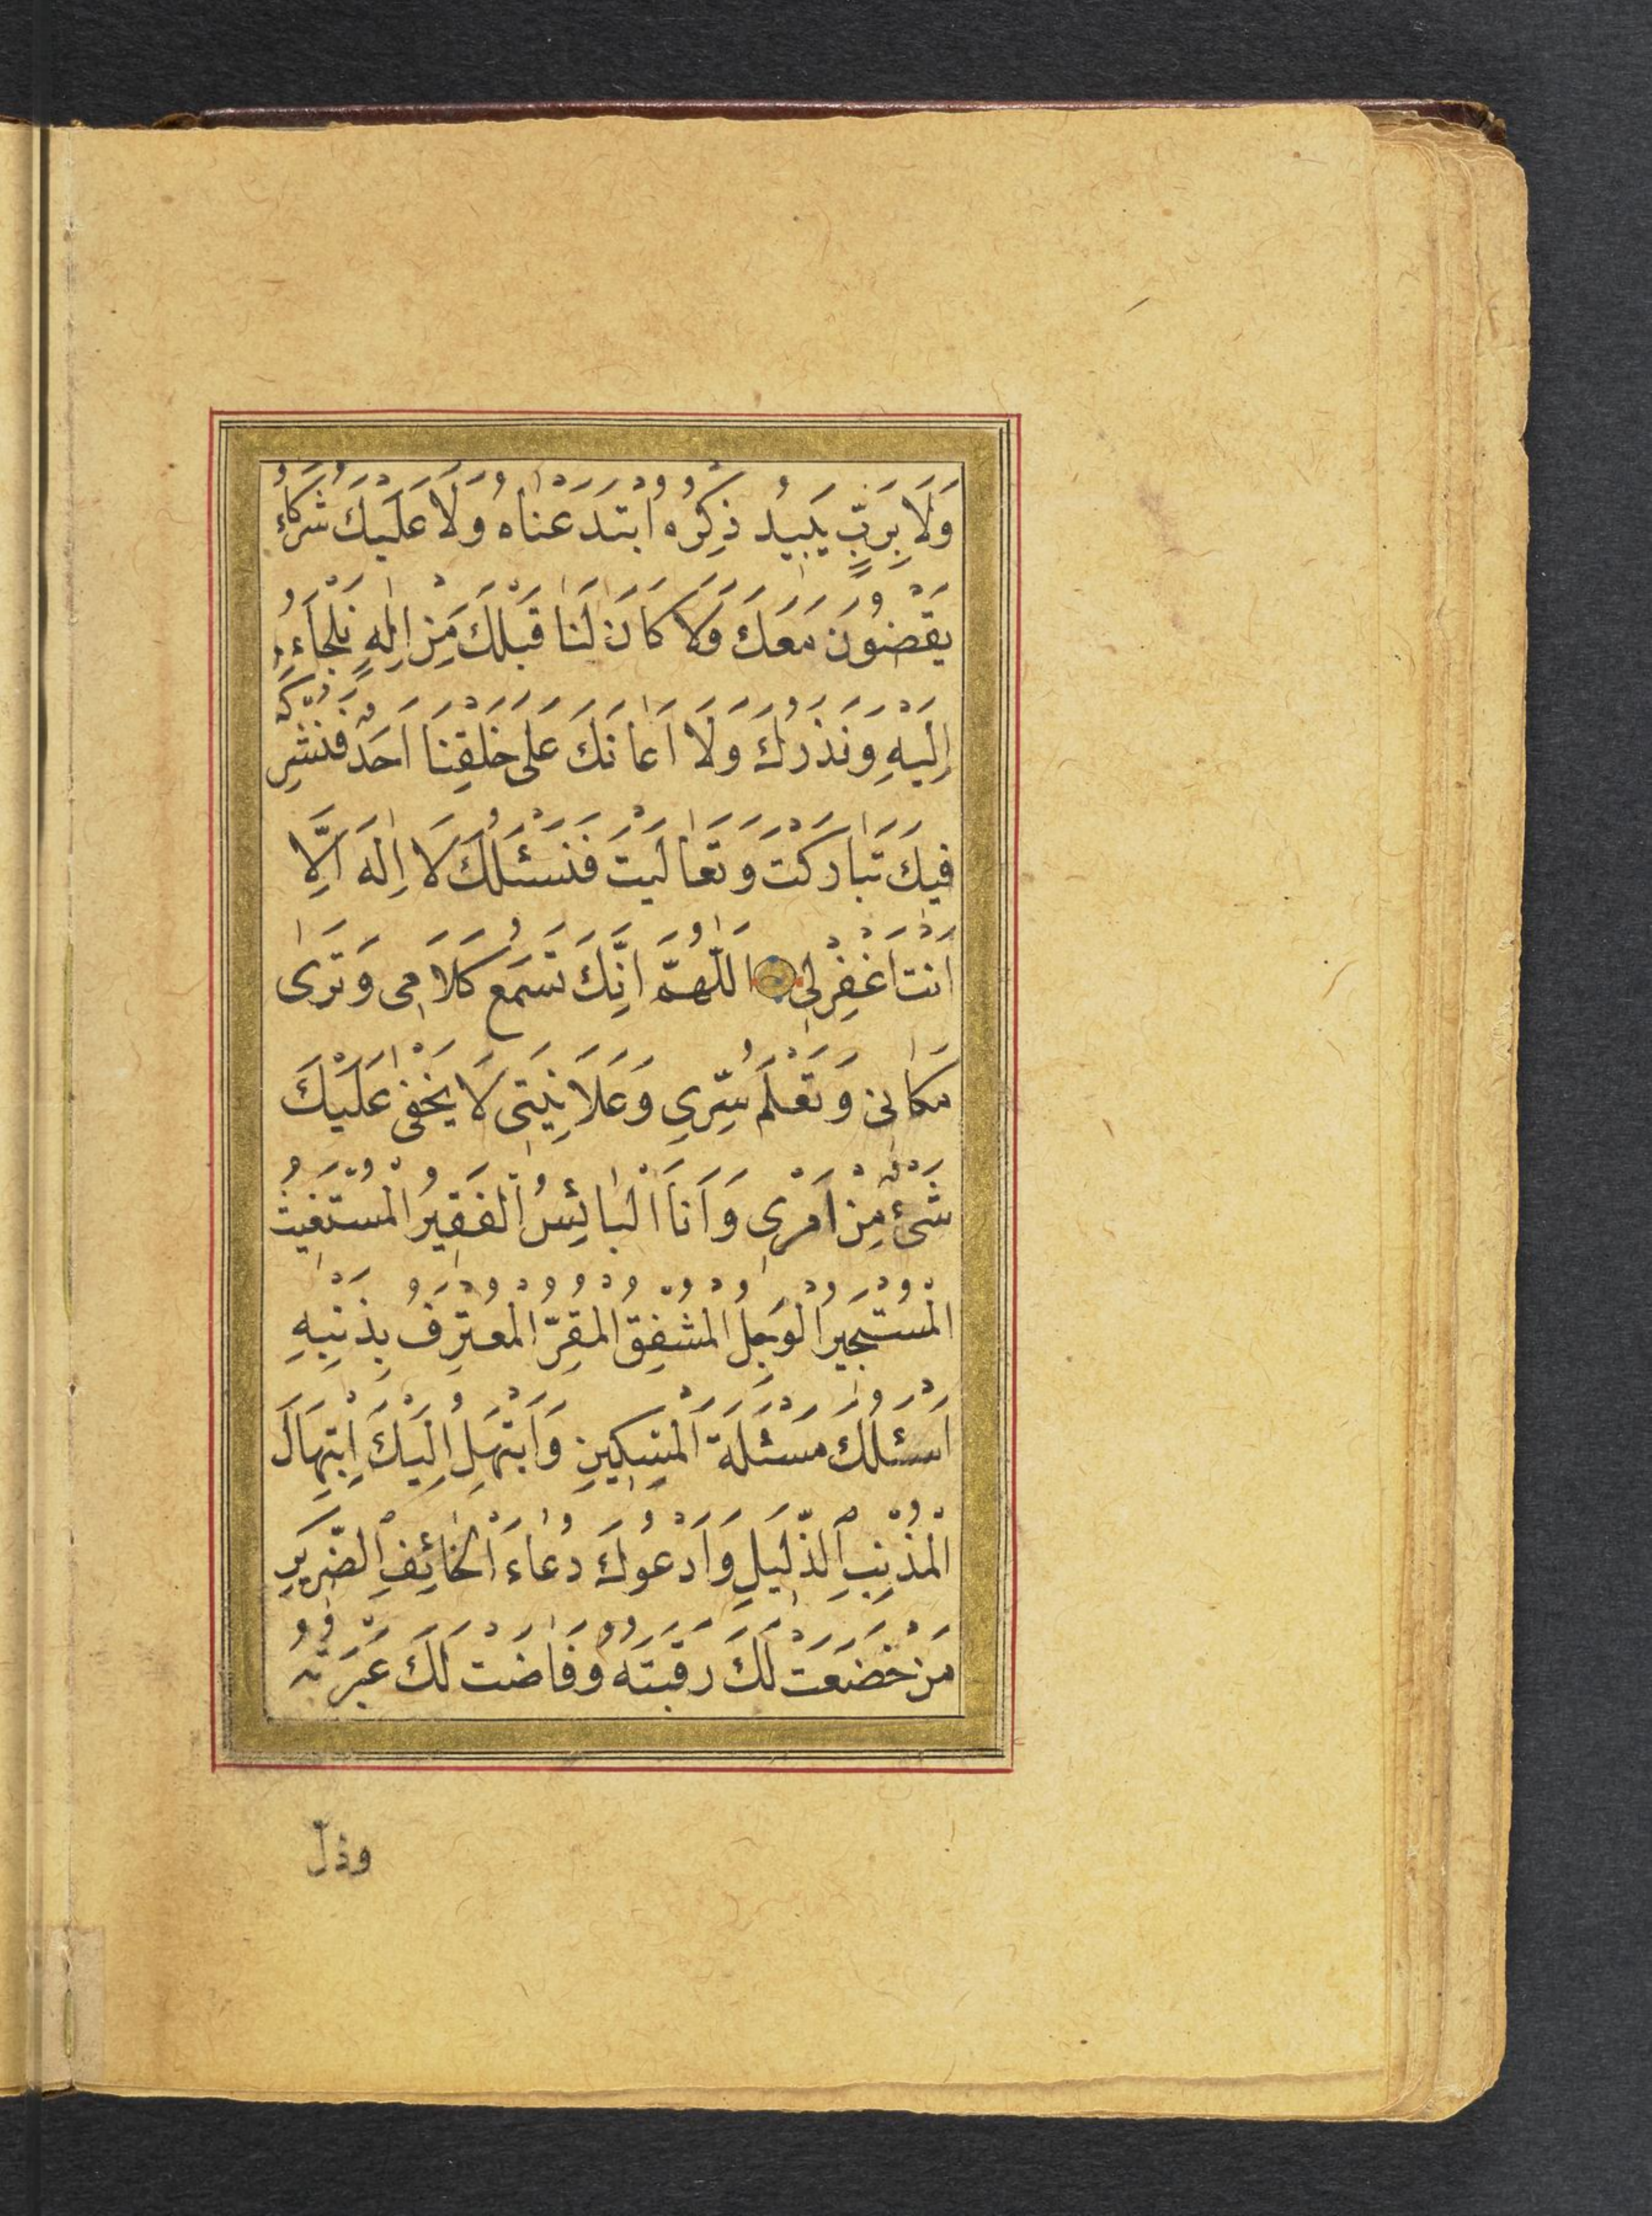 وَلَا بِرَبٍّ يَبِيدُ ذِكْرُهُ ابْتَدَعْنَاهُ وَلَا عَلَيْكَ شُرَكَاءُ
يَقْضُونَ مَعَكَ وَلَا كَانَ لَنَا قَبْلَكَ مِنْ اِلٰهٍ نَلْجَاءُ
اِلَيْهِ وَنَذَرُكَ وَلَا اَعَانَكَ عَلٰى خَلْقِنَا اَحَدٌ فَنُشْرِكَهُ
فِيكَ تَبَارَكْتَ وَتَعَالَيْتَ فَنَسْئَلُكَ لَا اِلٰهَ اِلَّا
اَنْتَ اغْفِرْ لِي اَللّٰهُمَّ اِنَّكَ تَسْمَعُ كَلَامِي وَتَرٰى
مَكَانِي وَتَعْلَمُ سِرِّي وَعَلَانِيَتِي لَا يَخْفٰى عَلَيْكَ
شَيْءٌ مِنْ اَمْرِي وَاَنَا الْبَائِسُ الْفَقِيرُ الْمُسْتَغِيثُ
الْمُسْتَجِيرُ الْوَجِلُ الْمُشْفِقُ الْمُقِرُّ الْمُعْتَرِفُ بِذَنْبِهِ
اَسْئَلُكَ مَسْئَلَةَ الْمِسْكِينِ وَاَبْتَهِلُ اِلَيْكَ اِبْتِهَالَ
الْمُذْنِبِ الذَّلِيلِ وَاَدْعُوكَ دُعَاءَ الْخَائِفِ الضَّرِيرِ
مَنْ خَضَعَتْ لَكَ رَقَبَتُهُ وَفَاضَتْ لَكَ عَبْرَتُهُ
وذلّ